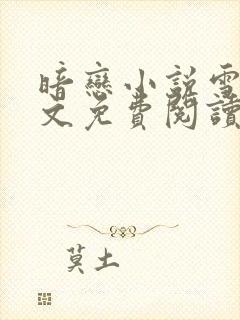 暗戀小說雪
文免費閱讀
莫土